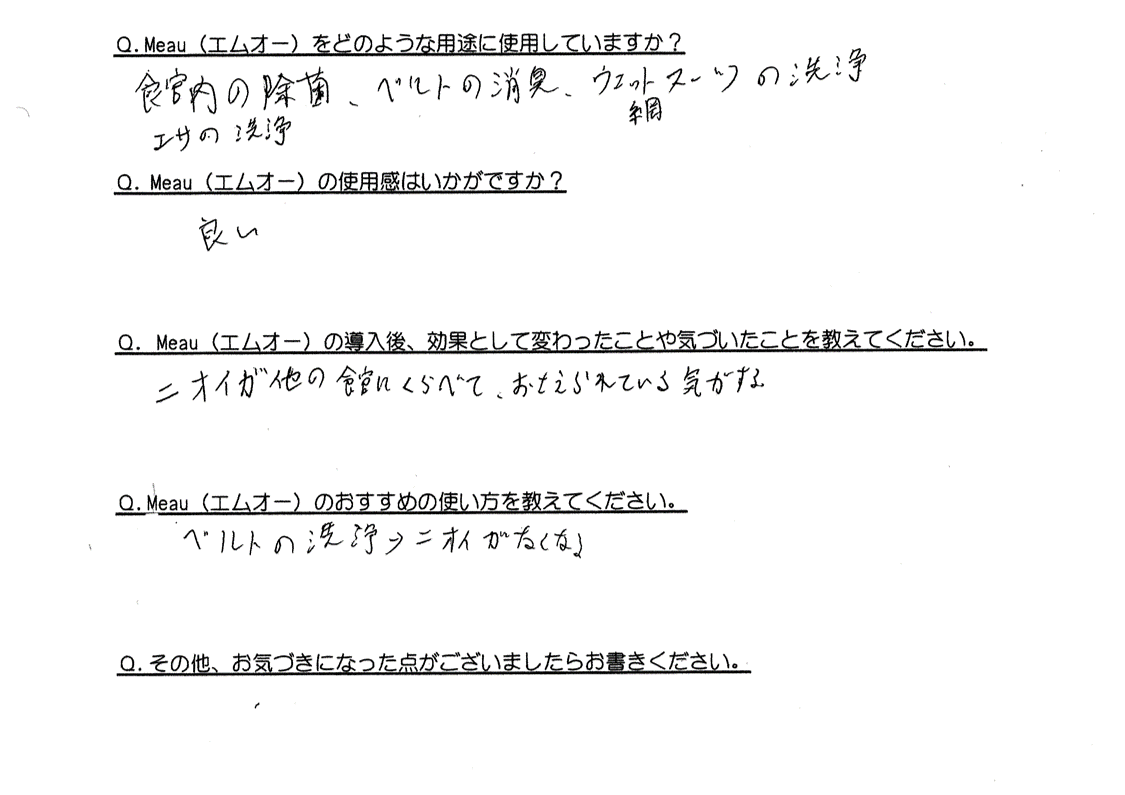 Q.Meau（エムオー）をどのような用途に使用していますか？
食官内の除菌、ベルトの消臭、ウエットスーツの洗浄
網
エサの洗浄
Q. Meau（エムオー）の使用感はいかがですか？
良い
Q. Meau（エムオー）の導入後、効果として変わったことや気づいたことを教えてください。
ニオイが他の館にくらべて、おさえられている気がする
Q.Meau（エムオー）のおすすめの使い方を教えてください。
ベルトの洗浄→ニオイがなくなる
Q.その他、お気づきになった点がございましたらお書きください。